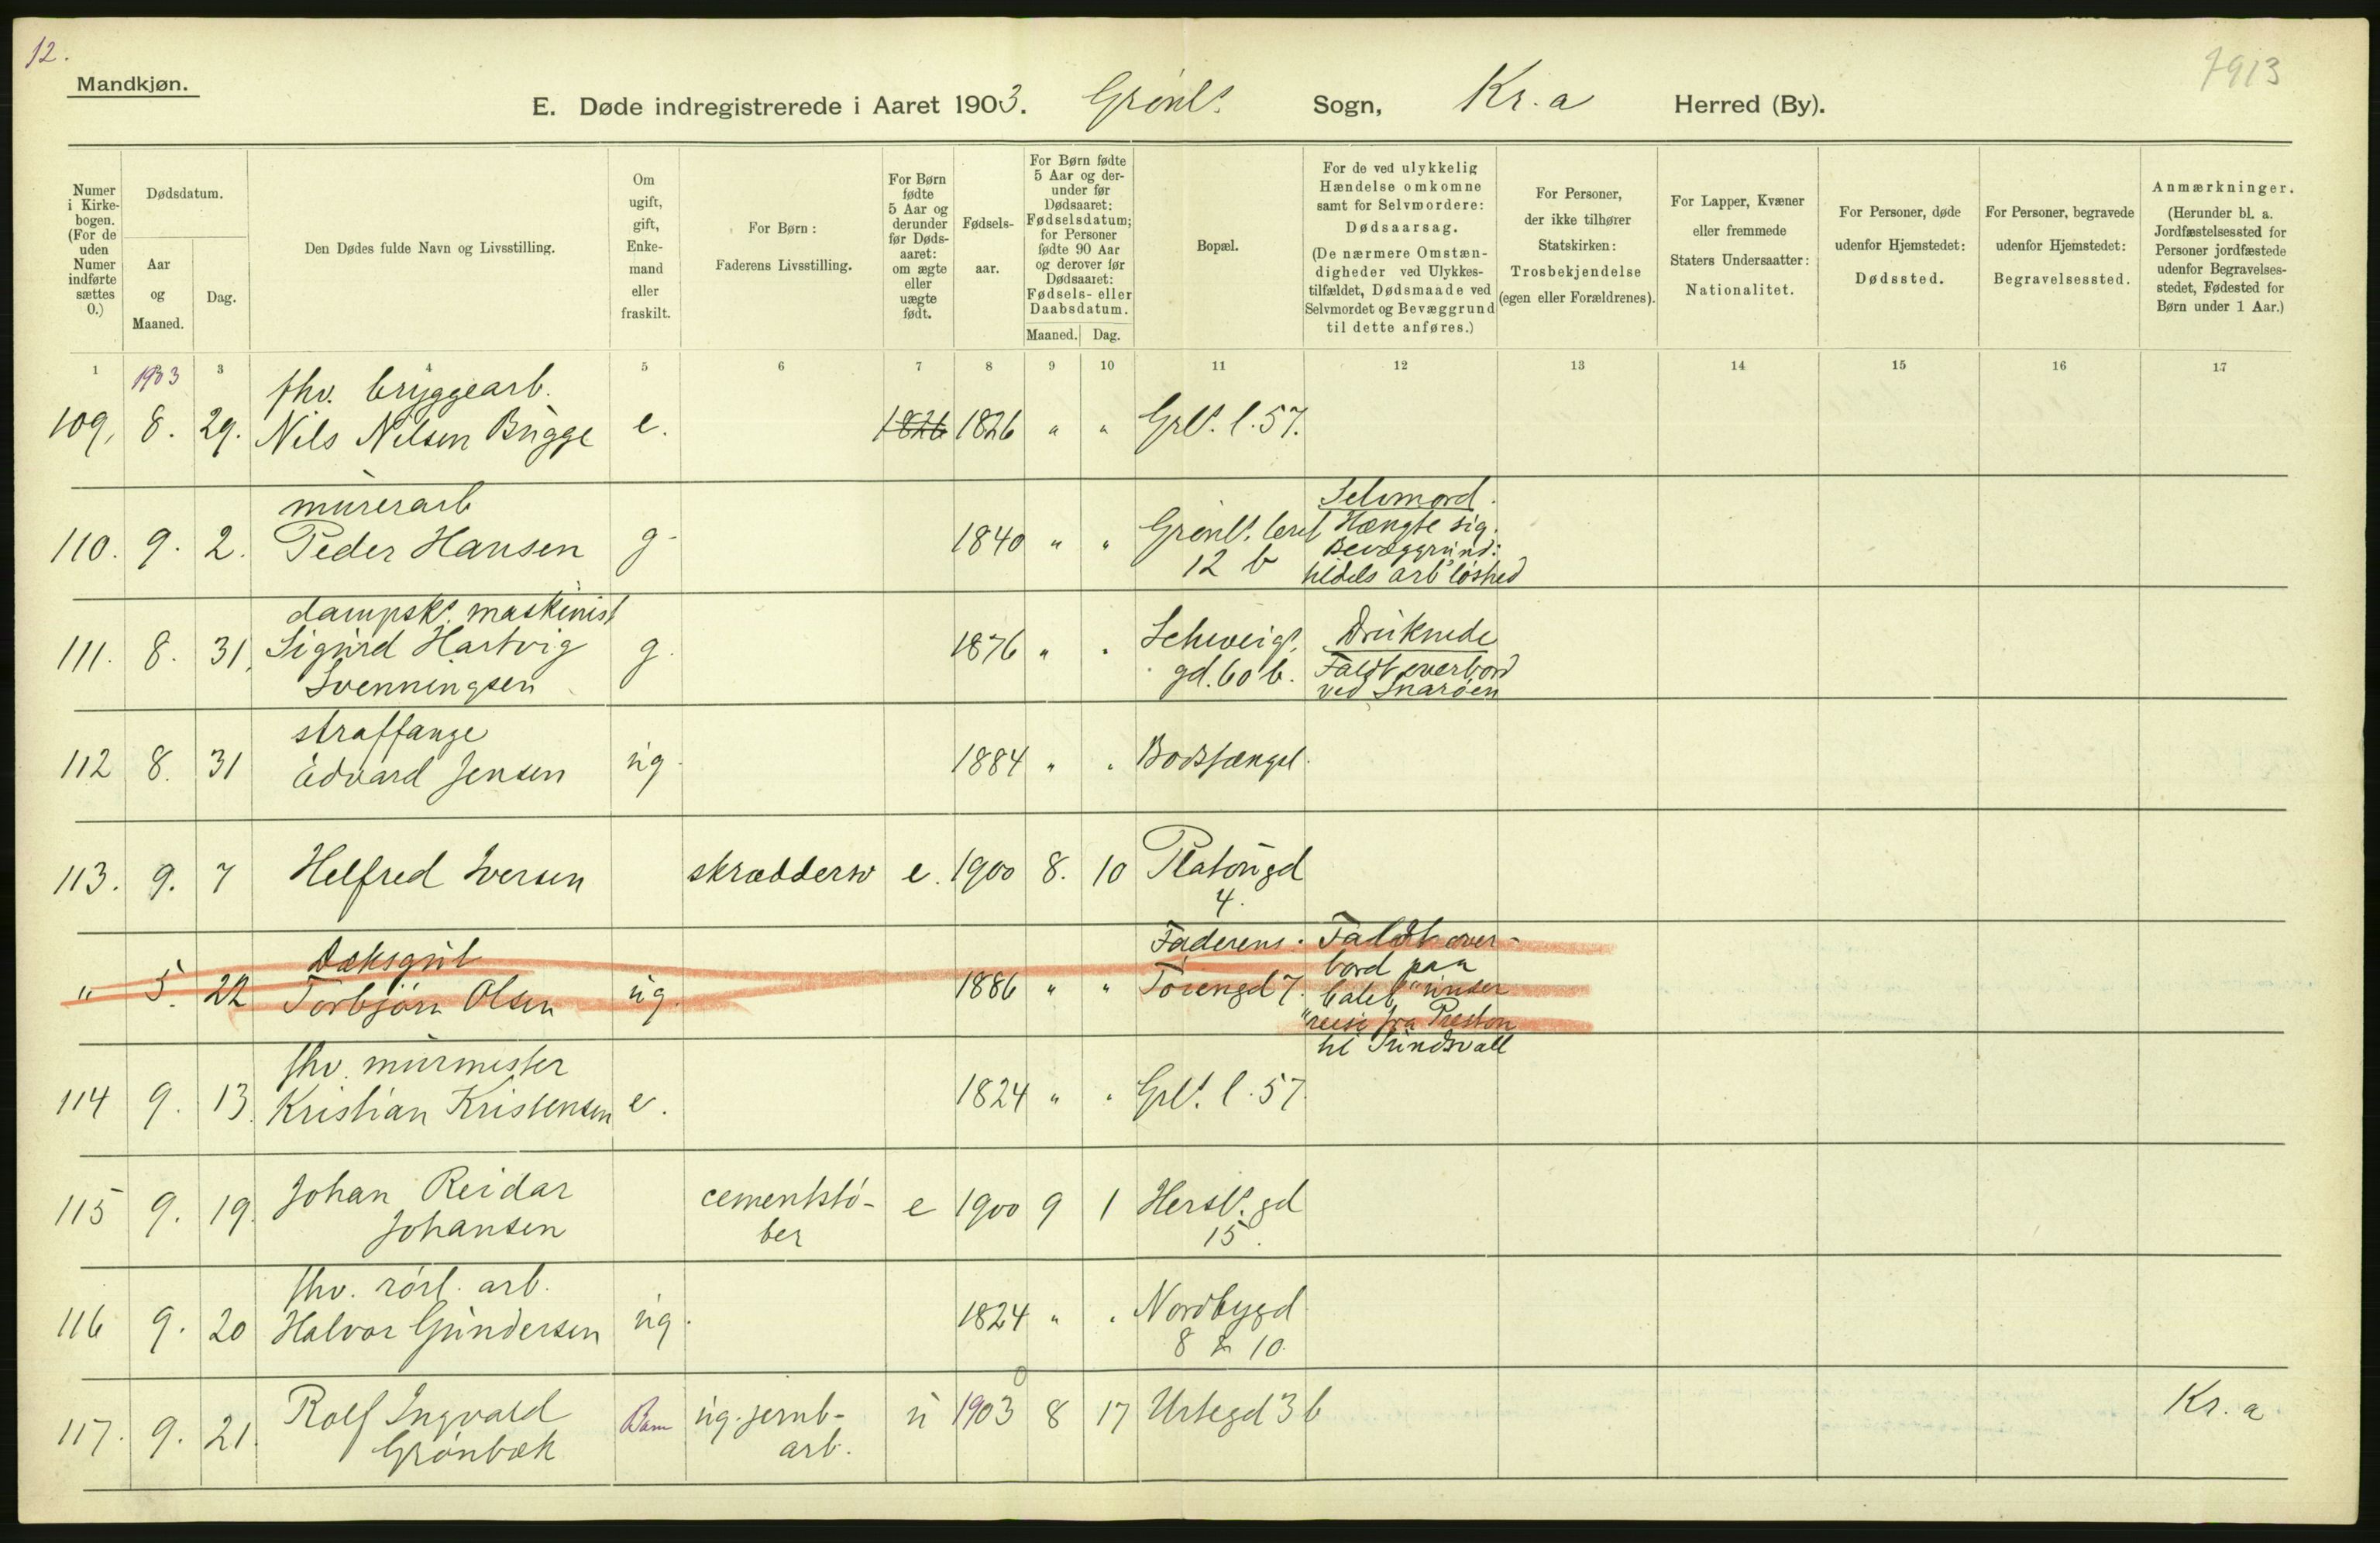 12.
7913
Mandkjøn.
E. Døde indregistrerede i Aaret 1903. Grønl.s Sogn, Kr.a Herred (By).
Numer i Kirke-bogen. (For de uden Numer indførte sættes 0.)
Dødsdatum.
Aar og Maaned.
Dag.
Den Dødes fulde Navn og Livsstilling.
Om ugift, gift, Enke-mand eller fraskilt.
For Børn: Faderens Livsstilling.
For Børn fødte 5 Aar og derunder før Døds-aaret: om ægte eller uægte født.
Fødsels-aar.
For Børn fødte 5 Aar og der-under før Dødsaaret: Fødselsdatum; for Personer fødte 90 Aar og derover før Dødsaaret: Fødsels- eller Daabsdatum.
Maaned. Dag.
Bopæl.
For de ved ulykkelig Hændelse omkomne samt for Selvmordere: Dødsaarsag. (De nærmere Omstæn-digheder ved Ulykkes-tilfældet, Dødsmaade ved Selvmordet og Bevæggrund til dette anføres.)
For Personer, der ikke tilhører Statskirken: Trosbekjendelse (egen eller Forældrenes).
For Lapper, Kvæner eller fremmede Staters Undersaatter: Nationalitet.
For Personer, døde udenfor Hjemstedet: Dødssted.
For Personer, begravede udenfor Hjemstedet: Begravelsessted.
Anmærkninger. (Herunder bl. a. Jordfæstelsessted for Personer jordfæstede udenfor Begravelses-stedet, Fødested for Børn under 1 Aar.)
1 1903 3 4 5 6 7 8 9 10 11 12 13 14 15 16 17
fhv. bryggearb.
109, 8. 29. Nils Nilsen Bugge e. 1826 1826 " " Grl.s l. 57.
murerarb
110. 9. 2. Peder Hansen g. 1840 " " Grønl.s leret 12 b
Selvmord.
Hængte sig.
Bevæggrund:
tildels arb'løshed
dampsk.s maskinist
111. 8. 31. Sigurd Hartvig g. 1876 " " Schweig.s
Svenningsen gd. 60 b.
Druknede
Faldt overbord
ved Snarøen
straffange
112 8. 31 Edvard Jensen ug. 1884 " " Bodsfængsl.
113. 9. 7 Helfred Iversen skræddersv e. 1900 8. 10 Platougd
4.
Dæksgut
" 5. 22 Torbjørn Olsen ug. 1886 " " Faderens:
Tøiengd 7.
Faldt over-
bord paa
"reise fra Preston
til Sundsvall
fhv. murmester
114 9. 13. Kristian Kristensen e. 1824 " " Grl.s l. 57.
115 9. 19. Johan Reidar cementstø- e 1900 9 1 Hersl.s gd
Johansen ber 15.
fhv. rørl. arb.
116 9. 20 Halvor Gundersen ug. 1824 " " Nordbygd
8 & 10.
117. 9. 21. Rolf Ingvald Barn ug. jernb- u 1903 8 17 Urtegd 3 b Kr. a
Grønbæk arb.